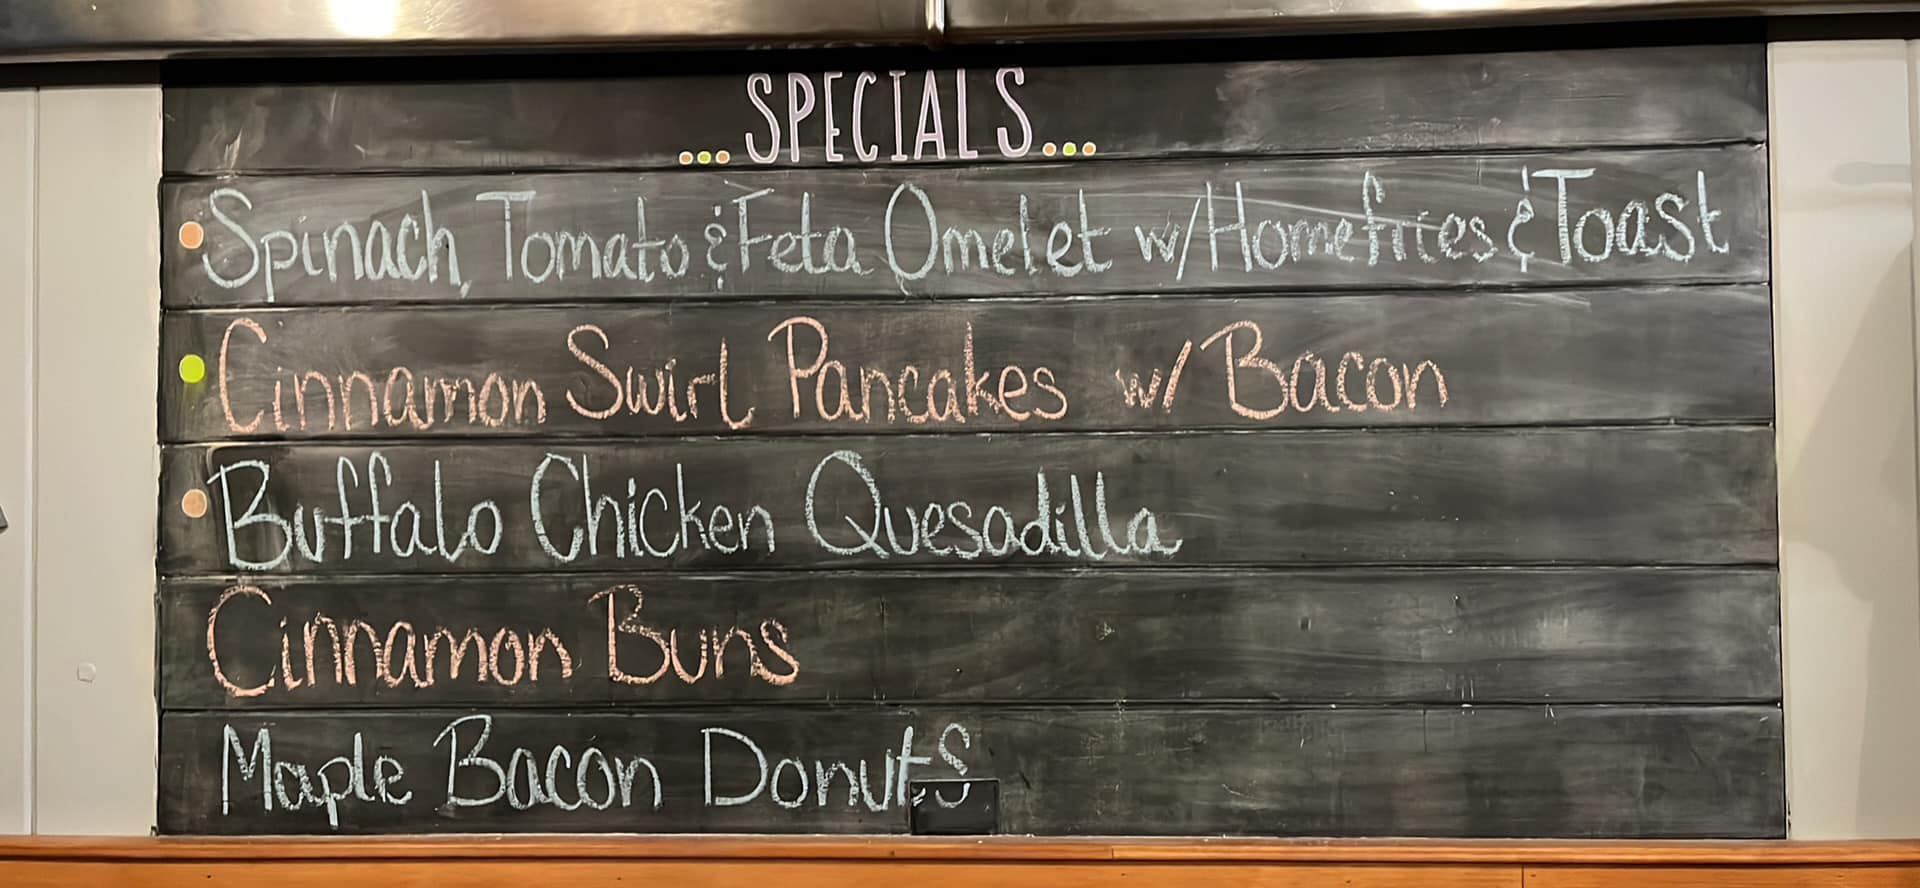 ...SPECIALS...
Spinach, Tomato & Feta Omelet w/Homefries & Toast
Cinnamon Swirl Pancakes w/ Bacon
Buffalo Chicken Quesadilla
Cinnamon Buns
Maple Bacon Donuts